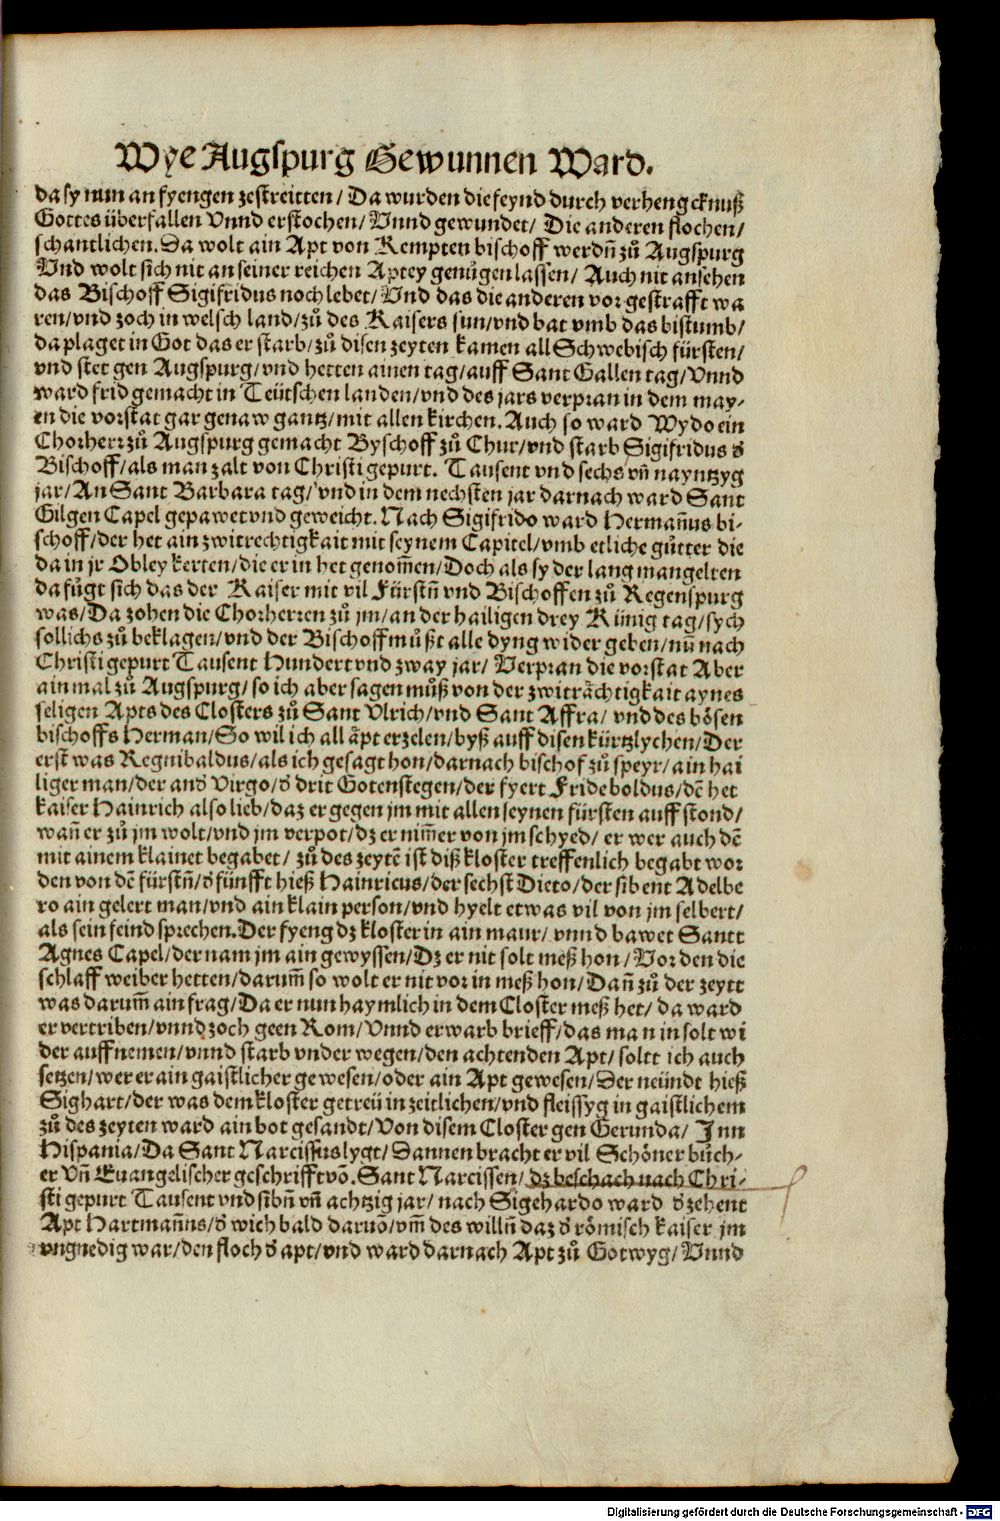 Wye Augspurg Gewunnen Ward.
da sy nun an fyengen zestreitten/ Da wurden die feynd durch verhengcknuß
Gottes überfallen Vnnd erstochen/ Vnnd gewundet/ Die anderen flochen/
schantlichen. Da wolt ain Apt von Kempten bischoff werdn̄ zů Augspurg
Vnd wolt sich nit an seiner reichen Aptey genůgen lassen/ Auch nit ansehen
das Bischoff Sigifridus noch lebet/ Vnd das die anderen vor gestrafft wa
ren/ vnd zoch in welsch land/ zů des Kaisers sun/ vnd bat vmb das bistumb/
da plaget in Got das er starb/ zů disen zeyten kamen all Schwebisch fürsten/
vnd stet gen Augspurg/ vnd hetten ainen tag/ auff Sant Gallen tag/ Vnnd
ward frid gemacht in Teütschen landen/ vnd des jars verpran in dem may⸗
en die vorstat gar genaw gantz/ mit allen kirchen. Auch so ward Wydo ein
Chorherr zů Augspurg gemacht Byschoff zů Chur/ vnd starb Sigifridus d̕
Bischoff/ als man zalt von Christi gepurt. Tausent vnd sechs vn̄ nayntzyg
jar/ An Sant Barbara tag/ vnd in dem nechsten jar darnach ward Sant
Gilgen Capel gepawet vnd geweicht. Nach Sigifrido ward Herman̄us bi⸗
schoff/ der het ain zwitrechtigkait mit seynem Capitel/ vmb etliche gůtter die
da in jr Obley kerten/ die er in het genom̄en/ Doch als sy der lang mangelten
da fůgt sich das der Kaiser mit vil Fürstn̄ vnd Bischoffen zů Regenspurg
was/ Da zohen die Chorherren zů jm/ an der hailigen drey Künig tag/ sych
sollichs zů beklagen/ vnd der Bischoff můßt alle dyng wider geben/ nu̇n nach
Christi gepurt Tausent Hundert vnd zway jar/ Verpran die vorstat Aber
ain mal zů Augspurg/ so ich aber sagen můß von der zwiträchtigkait aynes
seligen Apts des Closters zů Sant Vlrich/ vnd Sant Affra/ vnd des bösen
bischoffs Herman/ So wil ich all äpt erzelen/ byß auff disen kürtzlychen/ Der
erst was Regnibaldus/ als ich gesagt hon/ darnach bischof zů speyr/ ain hai
liger man/ der and̕ Virgo/ d̕ drit Gotenstegen/ der fyert Frideboldus/ dē het
kaiser Hainrich also lieb/ daz er gegen jm mit allen seynen fürsten auff stond/
wan̄ er zů jm wolt/ vnd jm verpot/ dz er nim̄er von jm schyed/ er wer auch dē
mit ainem klainet begabet/ zů des zeytē ist diß kloster treffenlich begabt wor
den von dē fürstn̄/ d̕ fünfft hieß Hainricus/ der sechst Dieto/ der sibent Adelbe
ro ain gelert man/ vnd ain klain person/ vnd hyelt etwas vil von jm selbert/
als sein feind sprechen. Der fyeng dz kloster in ain maur/ vnnd bawet Santt
Agnes Capel/ der nam jm ain gewyssen/ Dz er nit solt meß hon/ Vor den die
schlaff weiber hetten/ darum̄ so wolt er nit vor in meß hon/ Dan̄ zů der zeytt
was darum̄ ain frag/ Da er nun haymlich in dem Closter meß het/ da ward
er vertriben/ vnnd zoch geen Rom/ Vnnd erwarb brieff/ das man in solt wi
der auffnemen/ vnnd starb vnder wegen/ den achtenden Apt/ soltt ich auch
setzen/ wer er ain gaistlicher gewesen/ oder ain Apt gewesen/ Der neündt hieß
Sighart/ der was dem kloster getreü in zeitlichen/ vnd fleissyg in gaistlichem
zů des zeyten ward ain bot gesandt/ Von disem Closter gen Gerunda/ Inn
Hispania/ Da Sant Narcissus lygt/ Dannen bracht er vil Schöner bůch⸗
er Vn̄ Euangelischer geschrifft vō. Sant Narcissen/ dz beschach nach Chri⸗
sti gepurt Tausent vnd sibn̄ vn̄ achtzig jar/ nach Sigehardo ward d̕ zehent
Apt Hartman̄us/ d̕ wich bald daruō/ vm̄ des willn̄ daz d̕ römisch kaiser jm
vngnedig war/ den floch d̕ apt/ vnd ward darnach Apt zů Gotwyg/ Vnnd
Digitalisierung gefördert durch die Deutsche Forschungsgemeinschaft - DFG